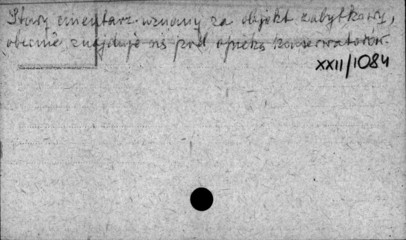 Stary cmentarz uznany za objekt zabytkowy,
obecnie znajduje się pod opieką konserwatorów.
XXII/1084